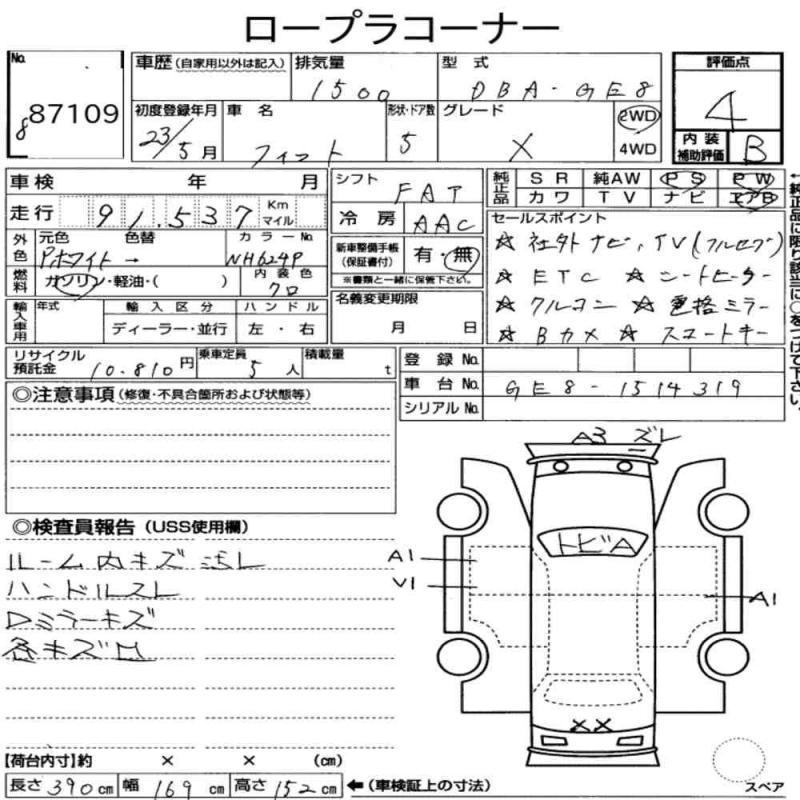 ロープラコーナー
No.
8
87109
車歴 (自家用以外は記入)
排気量
1500
型式
DBA-GE8
初度登録年月
23/5月
車名
フィット
形状・ドア数
5
グレード
X
2WD
4WD
評価点
4
内装
補助評価
B
車検 年 月
走行 91,537 Km マイル
シフト
FAT
冷房
AAC
純正品
SR 純AW PS PW
カワ TV ナビ エアB
外色
元色 色替 カラーNo.
Pホワイト → NH624P
燃料
ガソリン・軽油・( )
内装色
クロ
新車整備手帳
(保証書付)
有・無
※書類と一緒に保管下さい。
セールスポイント
☆ 社外ナビ、TV(フルセグ)
☆ ETC ☆ シートヒーター
☆ クルコン ☆ 電格ミラー
☆ Bカメ ☆ スマートキー
←純正品に限り該当に○をつけて下さい。
輸入車用
年式 輸入区分 ハンドル
ディーラー・並行 左・右
名義変更期限
月 日
リサイクル
預託金
10,810円
乗車定員
5人
積載量
t
登録No.
車台No.
GE8-1514319
シリアルNo.
◎注意事項 (修復・不具合箇所および状態等)
◎検査員報告 (USS使用欄)
ルーム内キズ汚レ
ハンドルスレ
Dミラーキズ
各キズ凹
A3 ズレ
トビA
A1
V1
A1
××
スペア
【荷台内寸】約 × × (cm)
長さ 390cm 幅 169cm 高さ 152cm ←(車検証上の寸法)